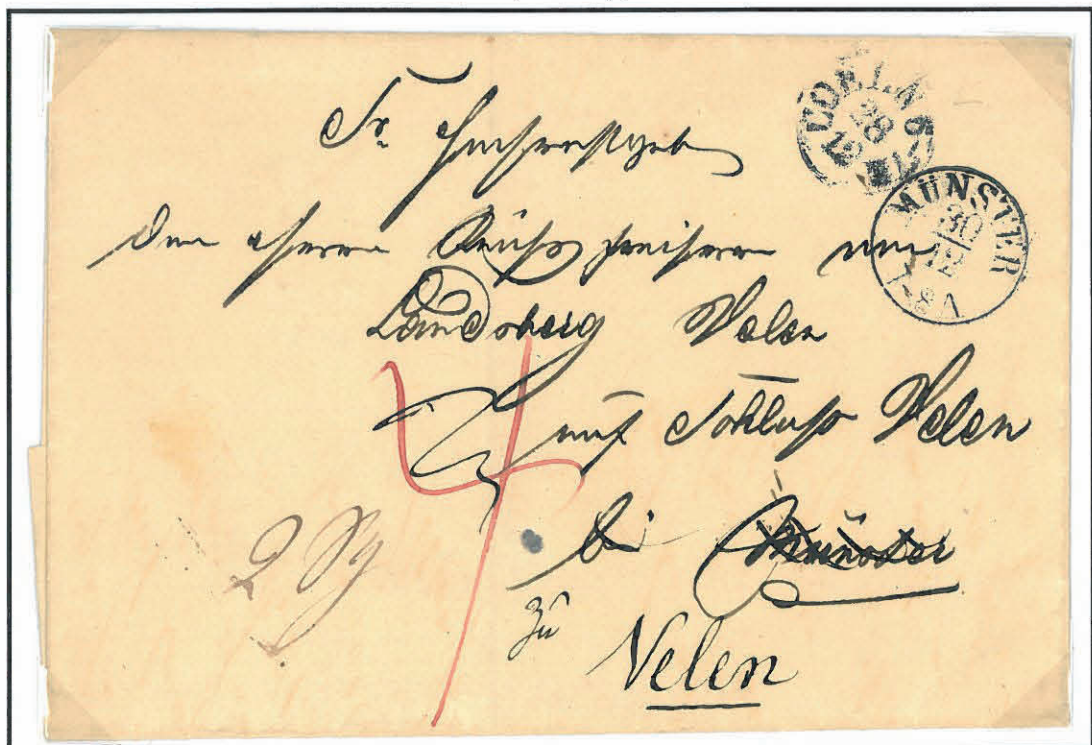 Sr. Hochwohlgeb
dem Herrn Freiherrn von
Landsberg Velen
auf Schloss Velen
bei Münster
zu
Velen
2 Sg
4
COELN
28
12
MÜNSTER
30
12